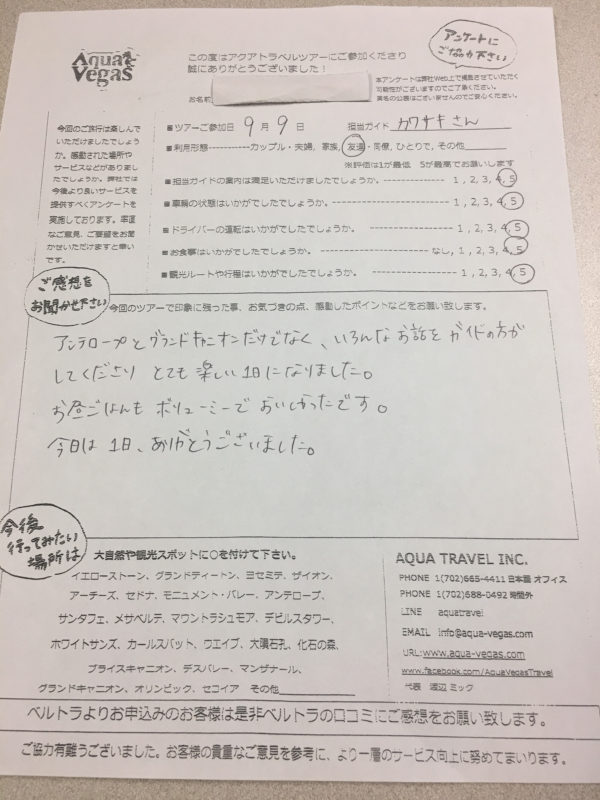 Aqua Vegas
この度はアクアトラベルツアーにご参加くださり
誠にありがとうございました！
アンケートに
ご協力下さい
本アンケートは弊社Web上で掲載させていただく
可能性がございますのでご了承ください。
実名の公表はございませんのでご安心ください。
お名前
今回のご旅行は楽しんで
いただけましたでしょう
か。感動された場所や
サービスなどがありまし
たでしょうか。弊社では
今後より良いサービスを
提供すべくアンケートを
実施しております。率直
なご意見、ご要望をお聞
かせいただけますと幸い
です。
■ツアーご参加日 9月9日 担当ガイド カワサキさん
■利用形態------------カップル・夫婦, 家族, 友達・同僚, ひとりで, その他
※評価は1が最低 5が最高でお願いします
■担当ガイドの案内は満足いただけましたでしょうか。 1 , 2 , 3, 4, 5
■車輌の状態はいかがでしたでしょうか。 1 , 2 , 3, 4, 5
■ドライバーの運転はいかがでしたでしょうか。 1 , 2 , 3, 4, 5
■お食事はいかがでしたでしょうか。 なし, 1 , 2 , 3, 4, 5
■観光ルートや行程はいかがでしたでしょうか。 1 , 2 , 3, 4, 5
ご感想を
お聞かせ下さい
今回のツアーで印象に残った事、お気づきの点、感動したポイントなどをお願い致します。
アンテロープとグランドキャニオンだけでなく、いろんなお話をガイドの方が
してくださり とても楽しい1日になりました。
お昼ごはんも ボリューミーで おいしかったです。
今日は 1日、ありがとうございました。
今後
行ってみたい
場所は
大自然や観光スポットに○を付けて下さい。
イエローストーン、グランドティートン、ヨセミテ、ザイオン、
アーチーズ、セドナ、モニュメント・バレー、アンテロープ、
サンタフェ、メサベルテ、マウントラシュモア、デビルスタワー、
ホワイトサンズ、カールスバット、ウエイブ、大隕石孔、化石の森、
ブライスキャニオン、デスバレー、マンザナール、
グランドキャニオン、オリンピック、セコイア その他
AQUA TRAVEL INC.
PHONE 1(702)665-4411 日本語 オフィス
PHONE 1(702)688-0492 時間外
LINE aquatravel
EMAIL info@aqua-vegas.com
URL:www.aqua-vegas.com
www.facebook.com/AquaVegasTravel
代表 渡辺 ミック
ベルトラよりお申込みのお客様は是非ベルトラの口コミにご感想をお願い致します。
ご協力有難うございました。お客様の貴重なご意見を参考に、より一層のサービス向上に努めてまいります。